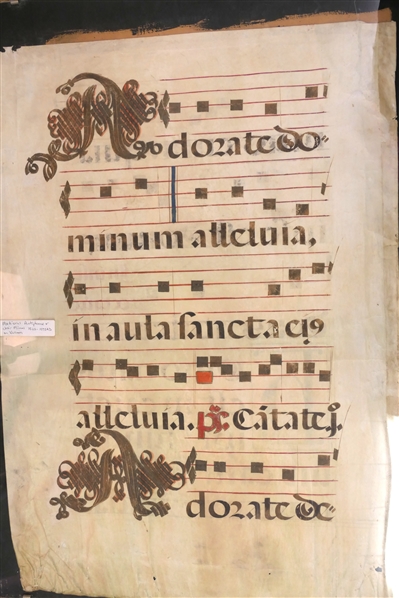 Adorate do-
minum alleluia,
in aula sancta eiꝰ
alleluia. ps. Cãtate.
Adorate de